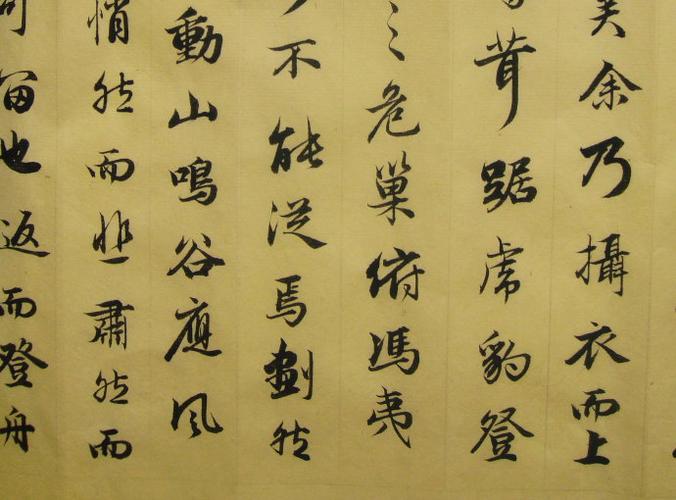 余乃攝衣而上
茸踞虎豹登
危巢俯馮夷
不能從焉劃然
動山鳴谷應風
悄然而悲肅然而
留也返而登舟